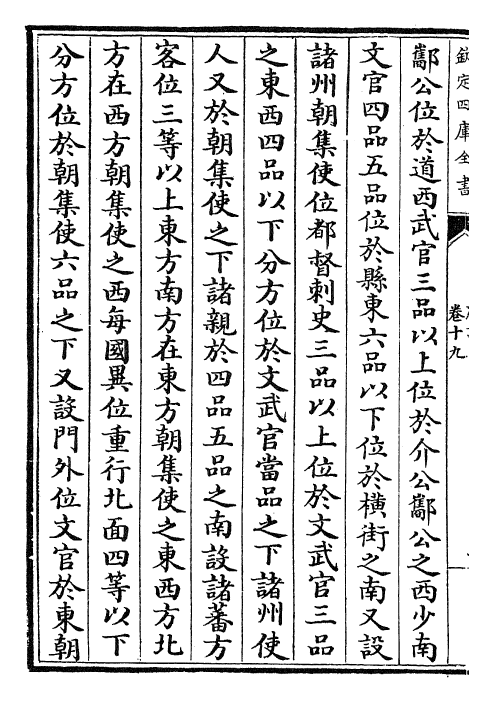 欽定四庫全書
卷十九
酅公位於道西武官三品以上位於介公酅公之西少南
文官四品五品位於縣東六品以下位於橫街之南又設
諸州朝集使位都督刺史三品以上位於文武官三品
之東西四品以下分方位於文武官當品之下諸州使
人又於朝集使之下諸親於四品五品之南設諸蕃方
客位三等以上東方南方在東方朝集使之東西方北
方在西方朝集使之西每國異位重行北面四等以下
分方位於朝集使六品之下又設門外位文官於東朝